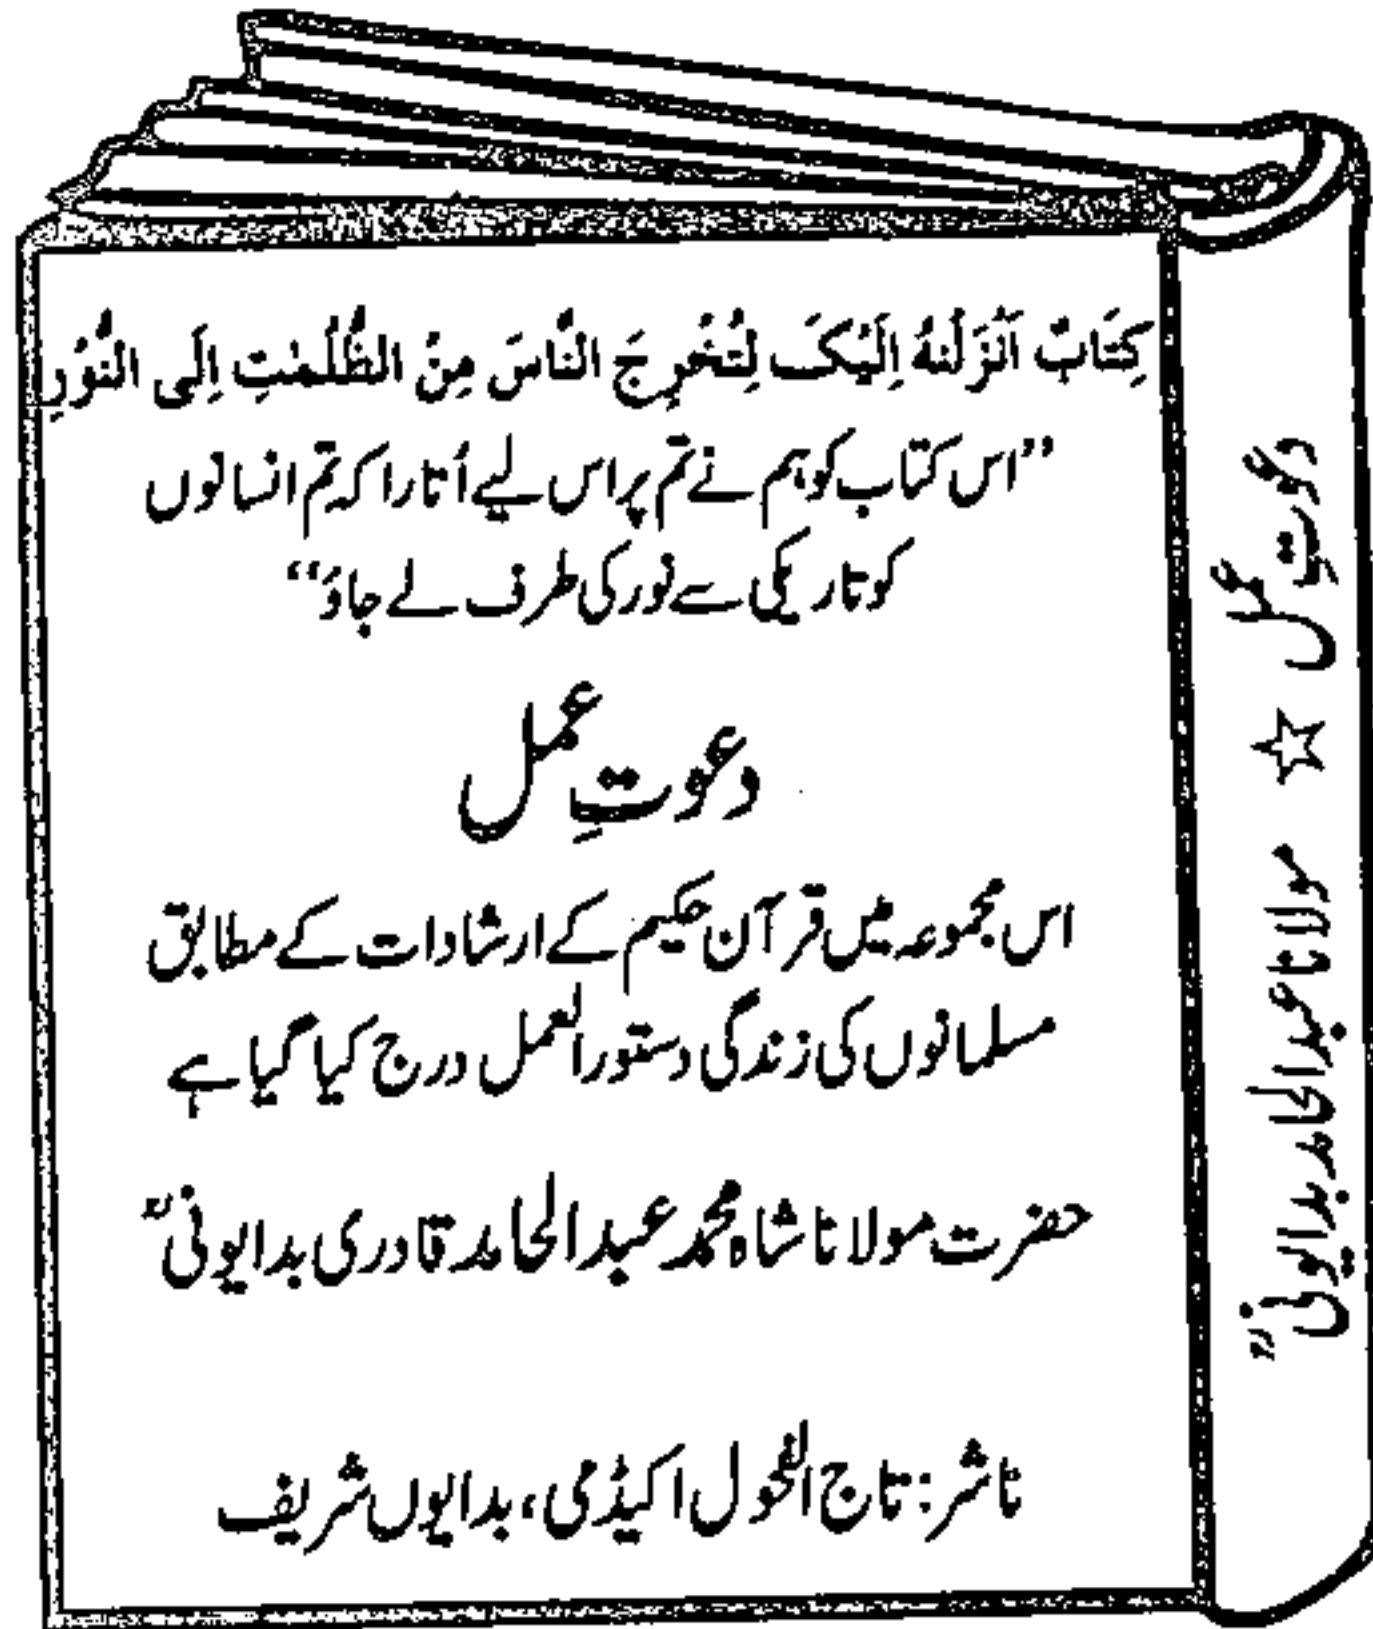 كِتَابٌ اَنْزَلْنٰهُ اِلَيْكَ لِتُخْرِجَ النَّاسَ مِنَ الظُّلُمٰتِ اِلَى النُّوْرِ
’’اس کتاب کو ہم نے تم پر اس لیے اُتارا کہ تم انسانوں
کو تاریکی سے نور کی طرف لے جاؤ‘‘
دعوتِ عمل
اس مجموعہ میں قرآن حکیم کے ارشادات کے مطابق
مسلمانوں کی زندگی دستورالعمل درج کیا گیا ہے
حضرت مولانا شاہ محمد عبدالحامد قادری بدایونیؒ
ناشر: تاج الفحول اکیڈمی، بدایوں شریف
دعوتِ عمل ☆ مولانا عبدالحامد بدایونیؒ